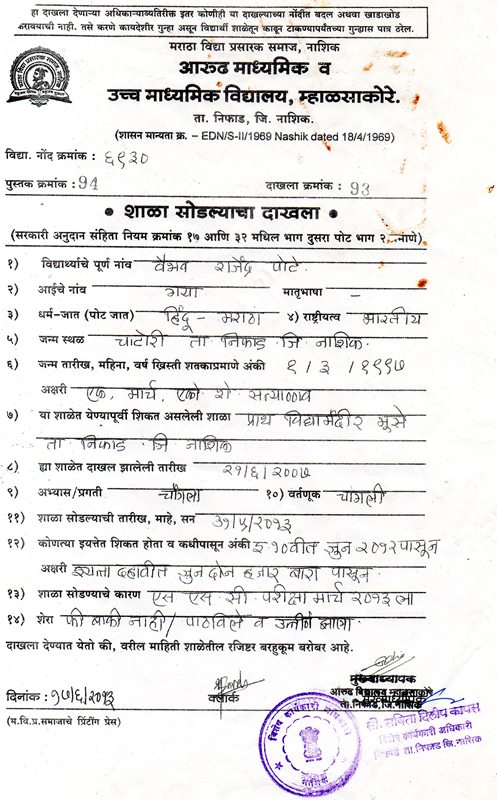 हा दाखला देणाऱ्या अधिकाऱ्याव्यतिरीक्त इतर कोणीही या दाखल्याच्या नोंदीत बदल अथवा खाडाखोड
करावयाची नाही. तसे करणे कायदेशीर गुन्हा असून विद्यार्थी शाळेतून काढून टाकण्यापर्यंतच्या गुन्ह्यास पात्र ठरेल.
मराठा विद्या प्रसारक समाज, नाशिक
आरुढ माध्यमिक व
उच्च माध्यमिक विद्यालय, म्हाळसाकोरे.
ता. निफाड, जि. नाशिक.
(शासन मान्यता क्र. – EDN/S-II/1969 Nashik dated 18/4/1969)
विद्या. नोंद क्रमांक : ६९३०
पुस्तक क्रमांक : 94 दाखला क्रमांक : 93
• शाळा सोडल्याचा दाखला •
(सरकारी अनुदान संहिता नियम क्रमांक १७ आणि ३२ मधिल भाग दुसरा पोट भाग २ माणे)
१) विद्यार्थ्याचे पूर्ण नांव वैभव राजेंद्र पोटे
२) आईचे नांव गया मातृभाषा –
३) धर्म-जात (पोट जात) हिंदू - मराठा ४) राष्ट्रीयत्व भारतीय
५) जन्म स्थळ चाटोरी ता निफाड जि नाशिक
६) जन्म तारीख, महिना, वर्ष ख्रिस्ती शतकाप्रमाणे अंकी १ / ३ / १९९७
अक्षरी एक, मार्च, एकोणीसशे सत्याण्णव
७) या शाळेत येण्यापूर्वी शिकत असलेली शाळा प्राथ विद्यामंदीर भुसे
ता निफाड जि नाशिक
८) ह्या शाळेत दाखल झालेली तारीख २१/६/२००७
९) अभ्यास/प्रगती चांगला १०) वर्तणूक चांगली
११) शाळा सोडल्याची तारीख, माहे, सन ३१/५/२०१३
१२) कोणत्या इयत्तेत शिकत होता व कधीपासून अंकी इ १०वीत जुन २०१२ पासून
अक्षरी इयत्ता दहावीत जुन दोन हजार बारा पासून
१३) शाळा सोडण्याचे कारण एस एस सी परीक्षा मार्च २०१३ ला
१४) शेरा फी बाकी नाही / पाठविले व उत्तीर्ण झाला
दाखला देण्यात येतो की, वरील माहिती शाळेतील रजिष्टर बरहुकूम बरोबर आहे.
दिनांक : १७/६/२०१३ क्लार्क मुख्याध्यापक
आरुढ विद्यालय म्हाळसाकोरे
ता.निफाड,जि.नाशिक
(म.वि.प्र.समाजाचे प्रिंटिंग प्रेस)
सौ. सविता दिलीप कापसे
विशेष कार्यकारी अधिकारी
ता.निफाड जि.नाशिक
विशेष कार्यकारी अधिकारी